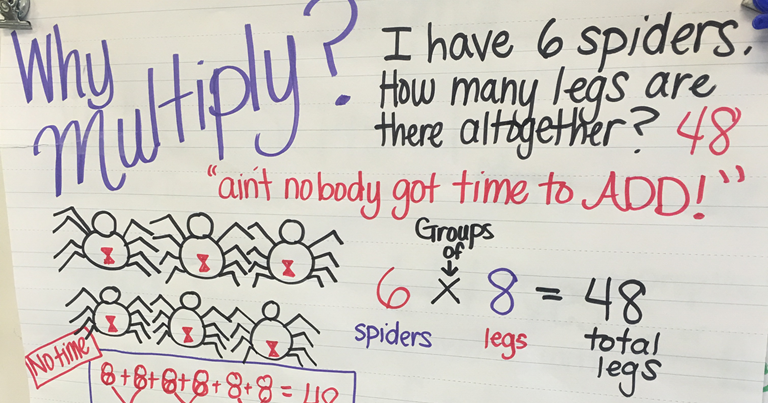 Why
Multiply?
I have 6 spiders.
How many legs are
there altogether? 48
"ain't nobody got time to ADD!"
Groups
of
6 × 8 = 48
spiders legs total
legs
No time
8+8+8+8+8+8 = 48